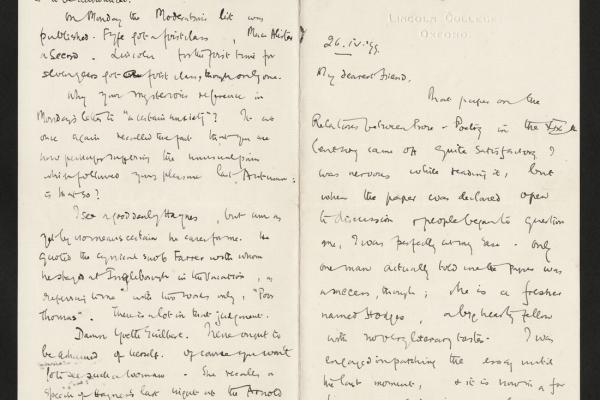 On Monday the Moderations list was
published. Fyfe got a first class, MacAlister
a Second. Lincoln for the first time for
several years got a first class, though only one.
Why your mysterious reference in
Monday's letter to "a certain anxiety"? It at
once again recalled the fact that you are
now perhaps suffering the unusual pain
which followed your pleasure last Autumn:
is that so?
I see a good deal by Haynes, but am as
yet by no means certain he cares for me. He
quoted the cynical snob Farrer with whom
he stays at Ingleborough in the Vacation, as
referring to me with two words only, "Poor
Thomas". There is a lot in that judgment.
Damn Yvette Guilbert. I
be ashamed of herself. Of course you won't
go to see such a woman. She recalls a
speech of Haynes's last night at the Arnold
LINCOLN COLLEGE
OXFORD.
26.IV.'99.
My dearest Friend,
That paper on the
Relations between Prose & Poetry in the XIX
century came off quite satisfactorily. I
was nervous while reading it, but
when the paper was declared open
to discussion & people began to question
me, I was perfectly at my ease. Only
one man actually told me the paper was
a success, though; he is a fresher
named Hodge a big hearty fellow
with no very literary taste. I was
engaged in patching the essay until
the last moment, & it is now in a far